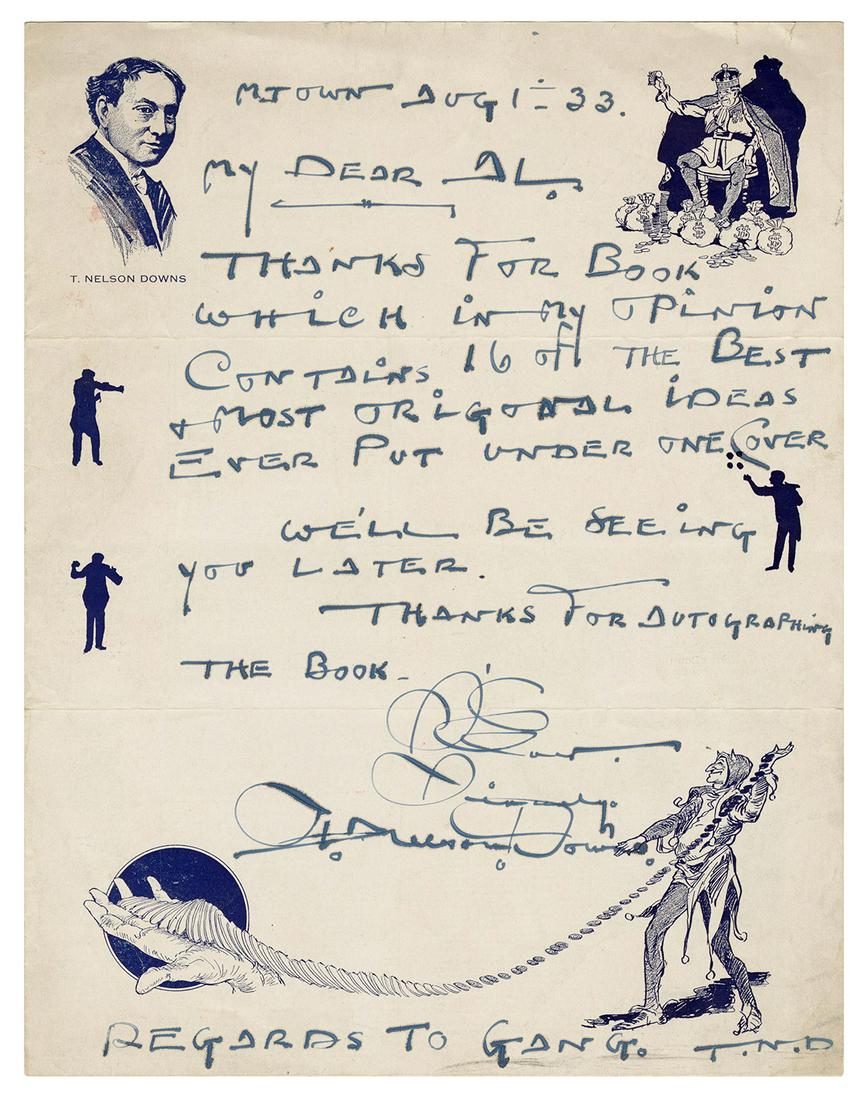 T. NELSON DOWNS
M.TOWN AUG 1 - 33.
MY DEAR AL.
THANKS FOR BOOK
WHICH IN MY OPINION
CONTAINS 16 OF THE BEST
& MOST ORIGONAL IDEAS
EVER PUT UNDER ONE COVER
WE'LL BE SEEING
YOU LATER.
THANKS FOR AUTOGRAPHING
THE BOOK -
Sincerely.
T. Nelson Downs.
REGARDS TO GANG. T.N.D